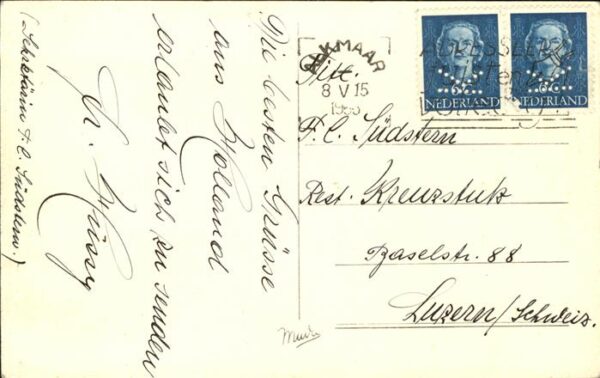 Die besten Grüsse
aus Holland
erlaubt sich zu senden
Fr.
(Sekretärin F.C. Südstern.)
ALKMAAR
8 V 15
195
NEDERLAND
NEDERLAND
Tit.
F.C. Südstern
Rest. Kreuzstutz
Baselstr. 88
Luzern/Schweiz.